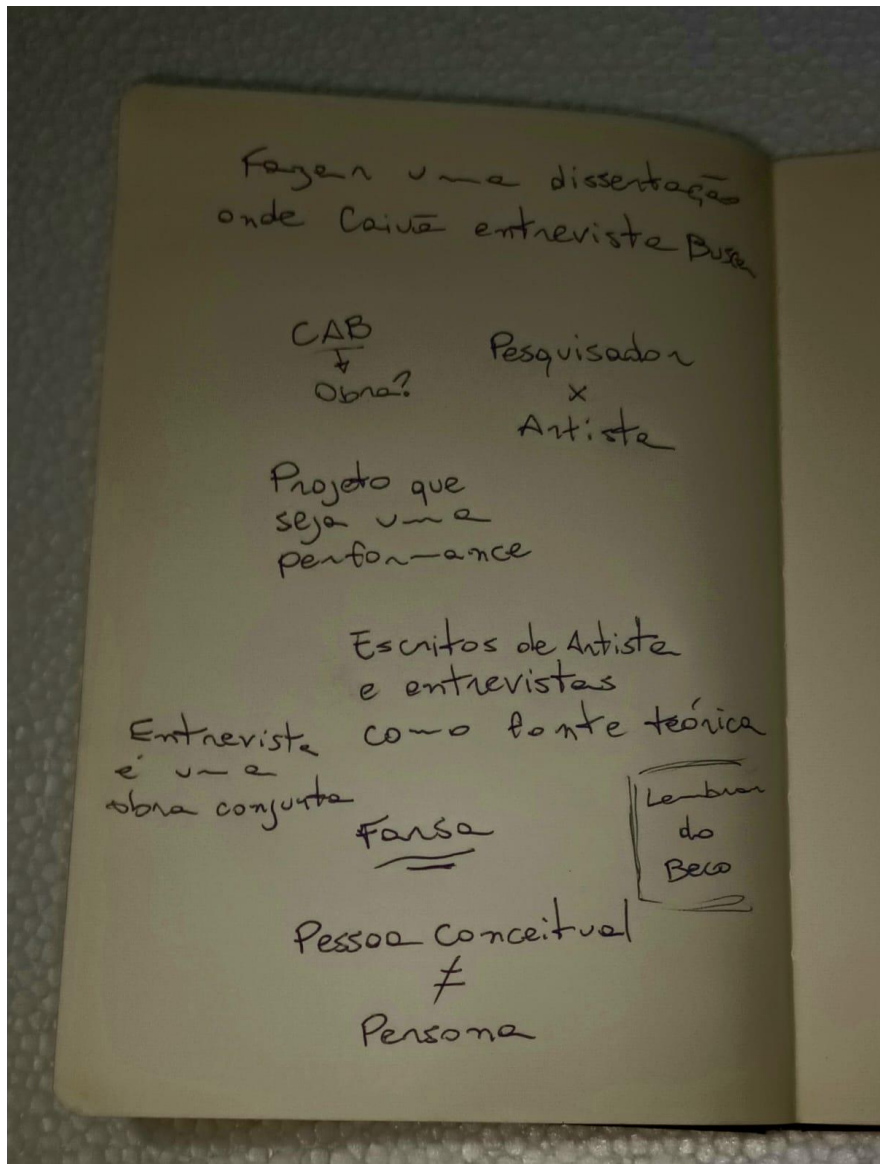 Fazer uma dissertação
onde Caivã entrevista Busca
CAB
Obra?
Pesquisador
x
Artista
Projeto que
seja uma
performance
Escritos de Artista
e entrevistas
como fonte teórica
Entrevista
é uma
obra conjunta
Farsa
Lembrar
do
Beco
Pessoa Conceitual
≠
Persona